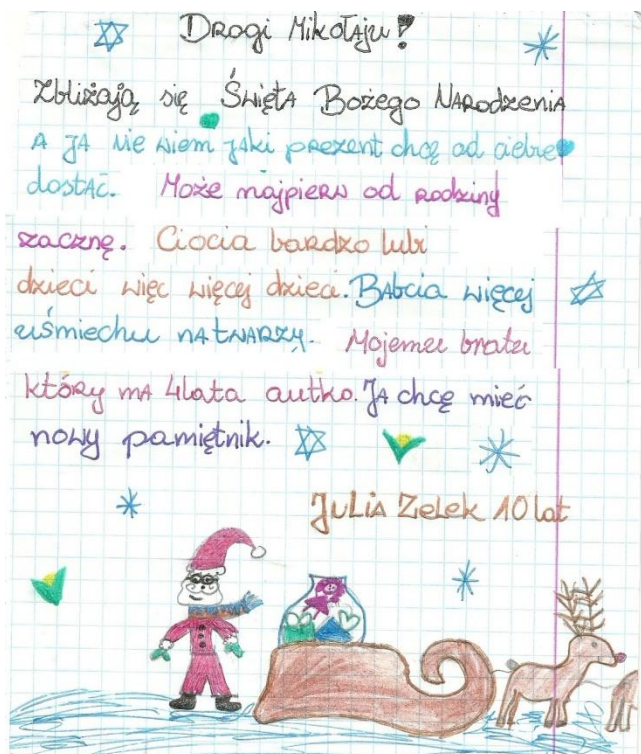 Drogi Mikołaju!
Zbliżają się Święta Bożego Narodzenia
A JA Nie wiem jaki prezent chcę od ciebie
dostać. Może najpierw od rodziny
zacznę. Ciocia bardzo lubi
dzieci więc więcej dzieci. Babcia więcej
uśmiechu na twarzy. Mojemu bratu
który ma 4lata autko. Ja chcę mieć
nowy pamiętnik.
Julia Zelek 10 lat